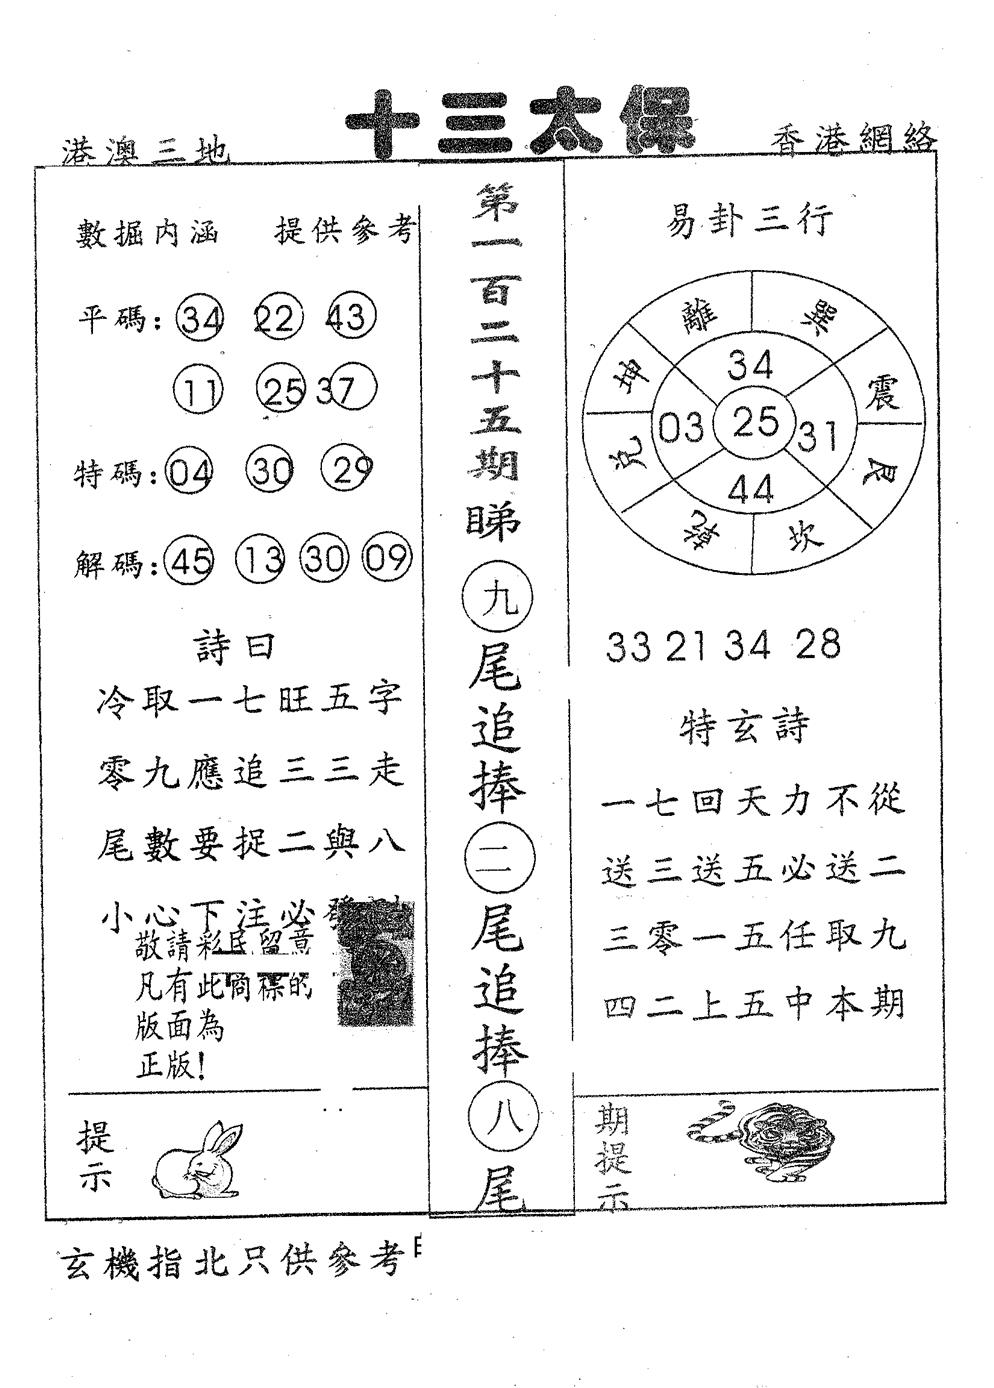 十三太保
港澳三地
香港網絡
數掘内涵 提供參考
平碼: 34 22 43
11 25 37
特碼: 04 30 29
解碼: 45 13 30 09
詩曰
冷取一七旺五字
零九應追三三走
尾數要捉二與八
小心下注必發
敬請彩民留意
凡有此商標的
版面為
正版!
提示
第一百二十五期睇九尾追捧二尾追捧八尾
易卦三行
離 巽
坤 34 震
03 25 31
兌 44 艮
乾 坎
33 21 34 28
特玄詩
一七回天力不從
送三送五必送二
三零一五任取九
四二上五中本期
期提示
玄機指北只供參考